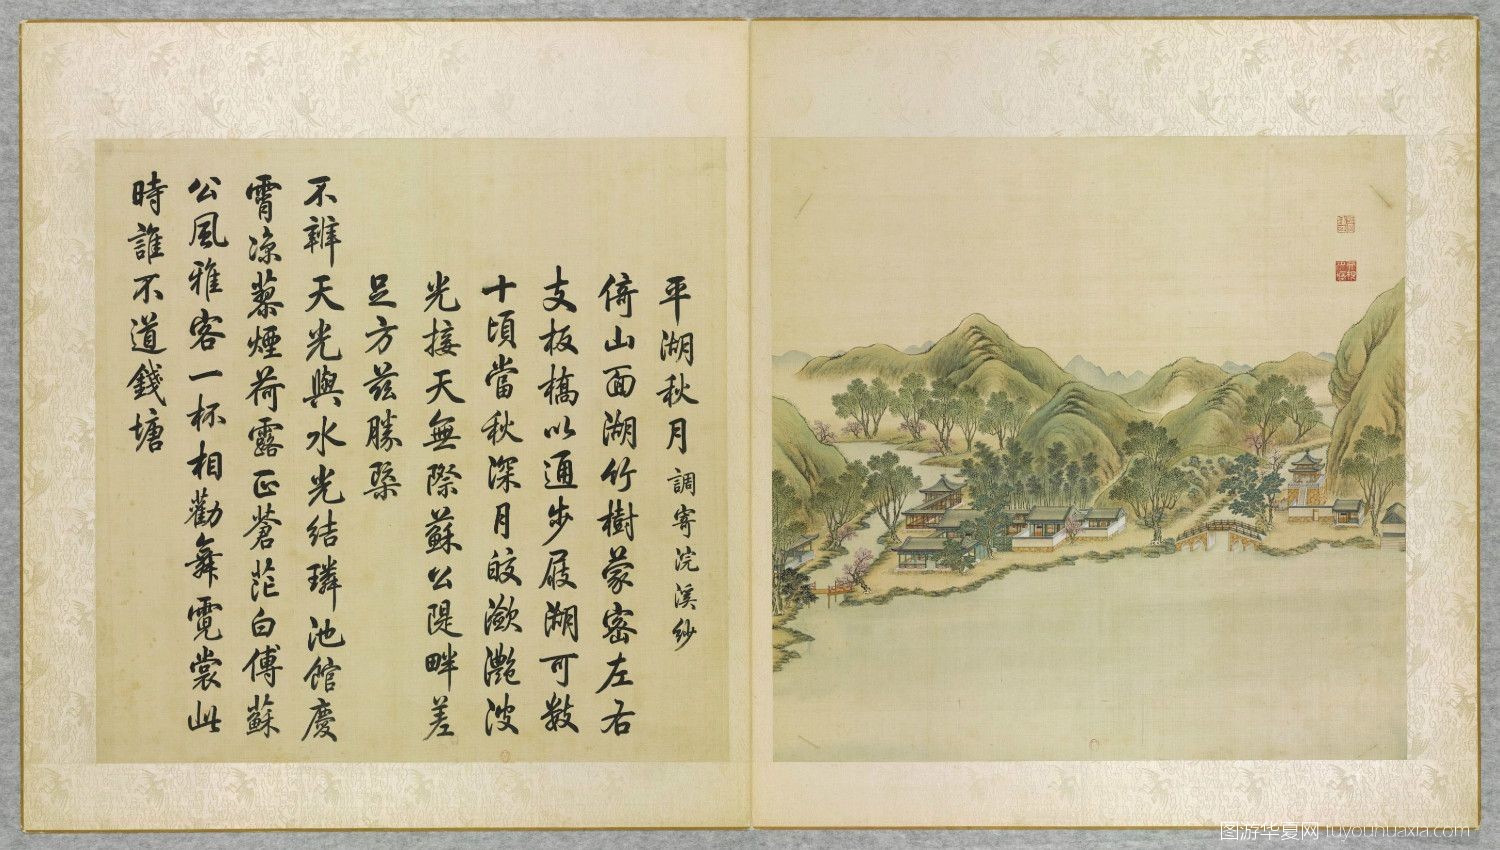 平湖秋月調寄浣溪紗
倚山面湖竹樹蒙密左右
支板橋以通步屐湖可數
十頃當秋深月皎瀲灧波
光接天無際蘇公隄畔差
足方茲勝槩
不辨天光與水光結璘池館慶
霄涼蓼煙荷露正蒼茫白傅蘇
公風雅客一杯相勸舞霓裳此
時誰不道錢塘
图游华夏网 tuyouhuaxia.com